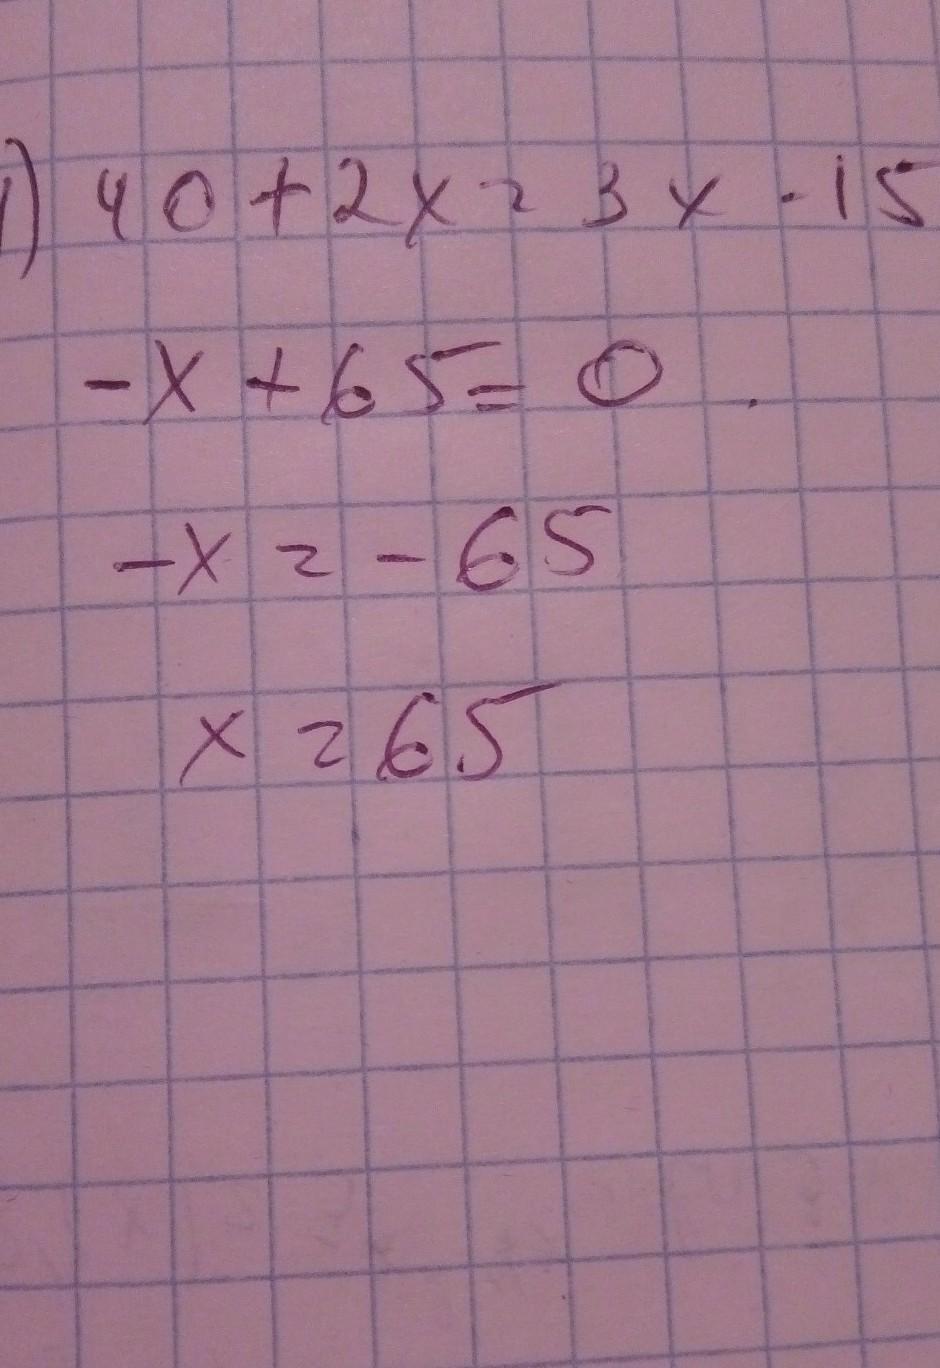 1) 40+2x=3x-15
-x+65=0.
-x=-65
x=65